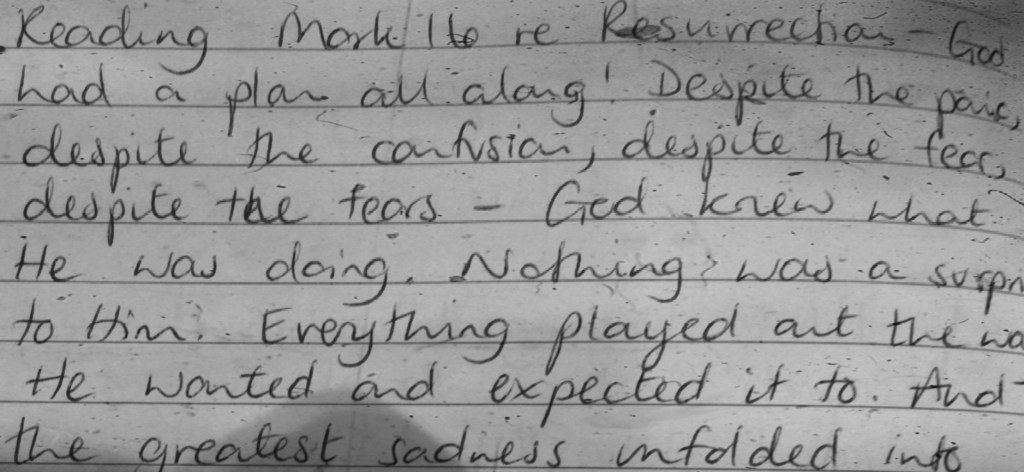 Reading Mark 16 re Resurrection - God
had a plan all along! Despite the pain,
despite the confusion, despite the fear,
despite the tears - God knew what
He was doing. Nothing was a surpri
to Him. Everything played out the wa
He wanted and expected it to. And
the greatest sadness unfolded into